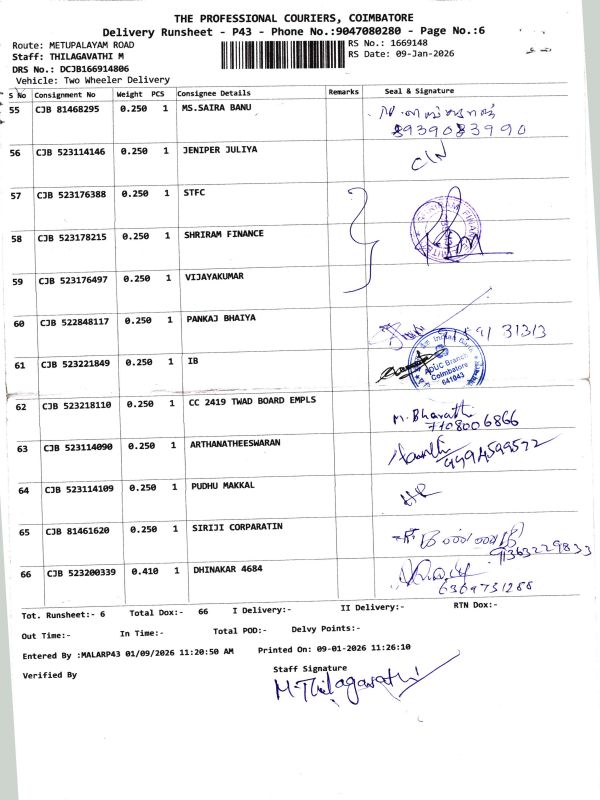 THE PROFESSIONAL COURIERS, COIMBATORE
Delivery Runsheet - P43 - Phone No.:9047080280 - Page No.:6
Route: METUPALAYAM ROAD
RS No.: 1669148
Staff: THILAGAVATHI M
RS Date: 09-Jan-2026
DRS No.: DCJB166914806
Vehicle: Two Wheeler Delivery
S No Consignment No Weight PCS Consignee Details Remarks Seal & Signature
55 CJB 81468295 0.250 1 MS.SAIRA BANU
8939083990
56 CJB 523114146 0.250 1 JENIPER JULIYA
57 CJB 523176388 0.250 1 STFC
58 CJB 523178215 0.250 1 SHRIRAM FINANCE
59 CJB 523176497 0.250 1 VIJAYAKUMAR
60 CJB 522848117 0.250 1 PANKAJ BHAIYA
61 CJB 523221849 0.250 1 IB
ADUC Branch
Coimbatore
641043
62 CJB 523218110 0.250 1 CC 2419 TWAD BOARD EMPLS M. Bharathi
7108006866
63 CJB 523114090 0.250 1 ARTHANATHEESWARAN
64 CJB 523114109 0.250 1 PUDHU MAKKAL
65 CJB 81461620 0.250 1 SIRIJI CORPARATIN
9363229833
66 CJB 523200339 0.410 1 DHINAKAR 4684
6369731288
Tot. Runsheet:- 6 Total Dox:- 66 I Delivery:- II Delivery:- RTN Dox:-
Out Time:- In Time:- Total POD:- Delvy Points:-
Entered By :MALARP43 01/09/2026 11:20:50 AM Printed On: 09-01-2026 11:26:10
Verified By
Staff Signature
M.Thilagavathi